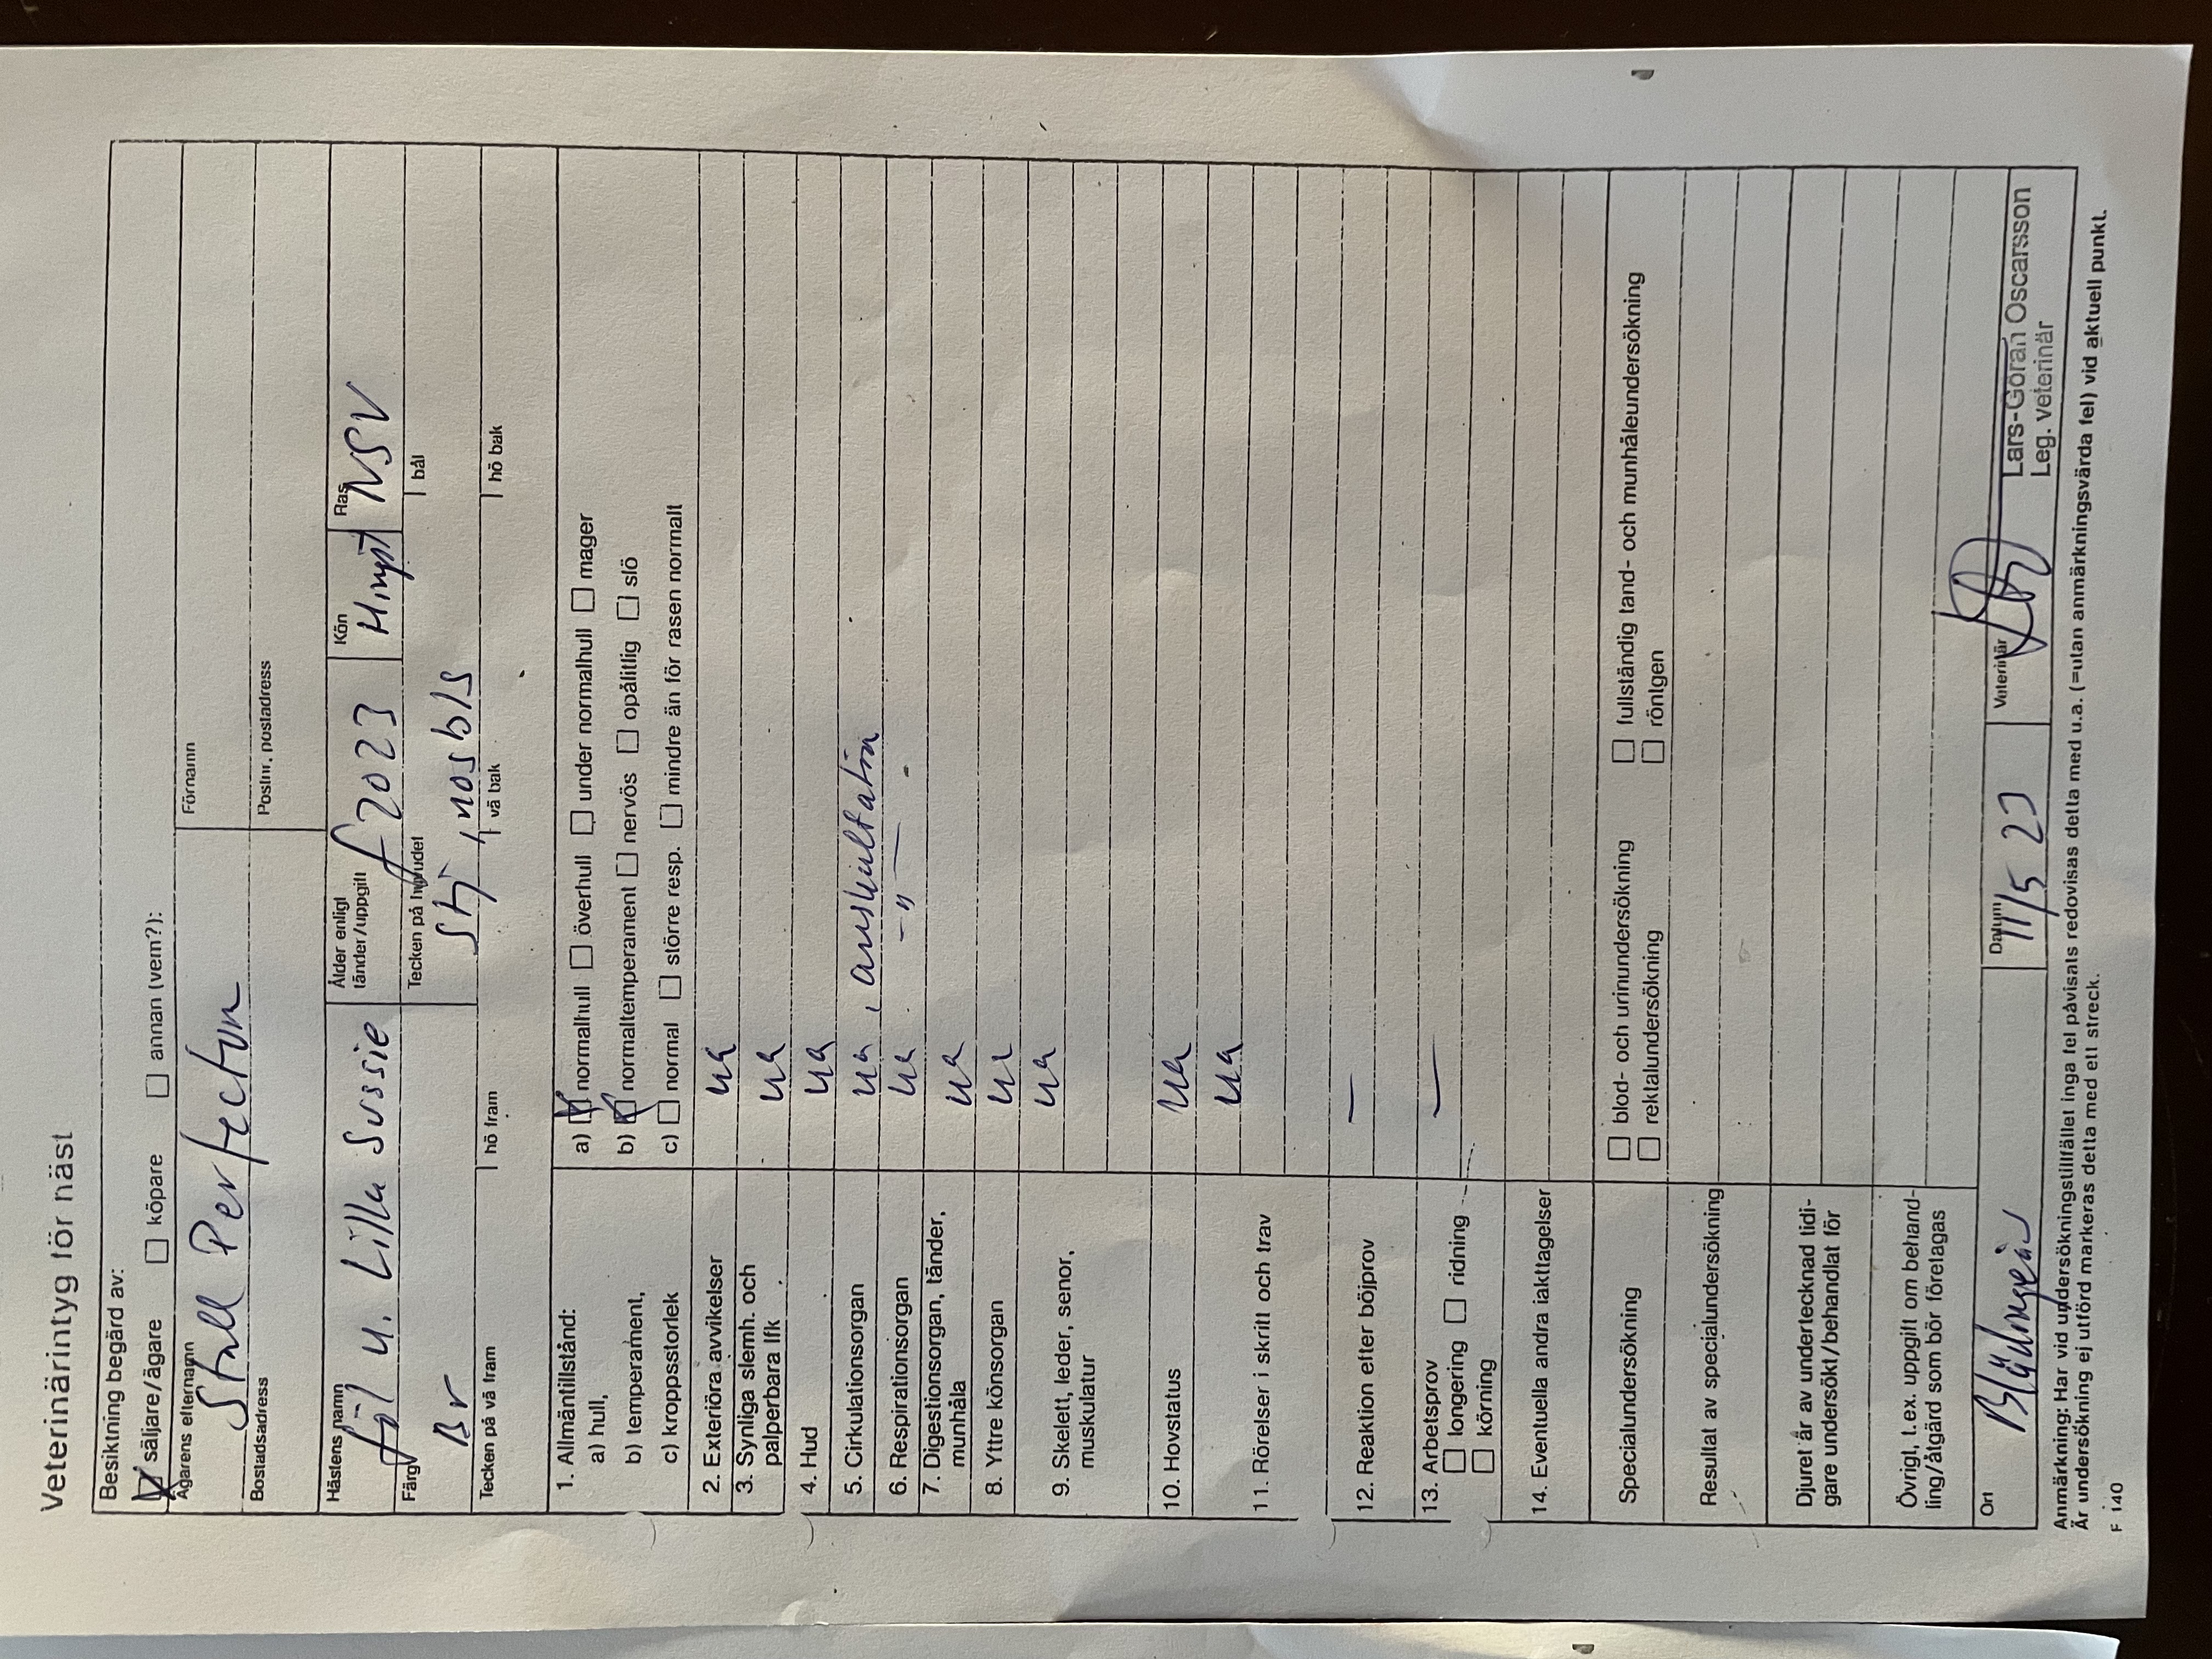 Veterinärintyg för häst
Besiktning begärd av:
säljare/ägare köpare annan (vem?):
Ägarens efternamn Förnamn
Stall Perfecton
Bostadsadress Postnr, postadress
Hästens namn Ålder enligt tänder/uppgift Kön Ras
föl u. Lilla Sussie f 2023 Hingst NSV
Färg Tecken på huvudet bål
Br Stj, nosbls
Tecken på vä fram hö fram vä bak hö bak
1. Allmäntillstånd:
a) hull, a) normalhull överhull under normalhull mager
b) temperament, b) normaltemperament nervös opålitlig slö
c) kroppsstorlek c) normal större resp. mindre än för rasen normalt
2. Exteriöra avvikelser ua
3. Synliga slemh. och palperbara lfk ua
4. Hud ua
5. Cirkulationsorgan ua, auskultation
6. Respirationsorgan ua -"-
7. Digestionsorgan, tänder, munhåla ua
8. Yttre könsorgan ua
9. Skelett, leder, senor, muskulatur ua
10. Hovstatus ua
11. Rörelser i skritt och trav ua
12. Reaktion efter böjprov —
13. Arbetsprov —
longering ridning
körning
14. Eventuella andra iakttagelser
Specialundersökning blod- och urinundersökning fullständig tand- och munhåleundersökning
rektalundersökning röntgen
Resultat av specialundersökning
Djuret är av undertecknad tidi-
gare undersökt/behandlat för
Övrigt, t.ex. uppgift om behand-
ling/åtgärd som bör företagas
Ort Datum Veterinär
11/5 23
Lars-Göran Oscarsson
Leg. veterinär
Anmärkning: Har vid undersökningstillfället inga fel påvisats redovisas detta med u.a. (=utan anmärkningsvärda fel) vid aktuell punkt.
Är undersökning ej utförd markeras detta med ett streck.
F 140